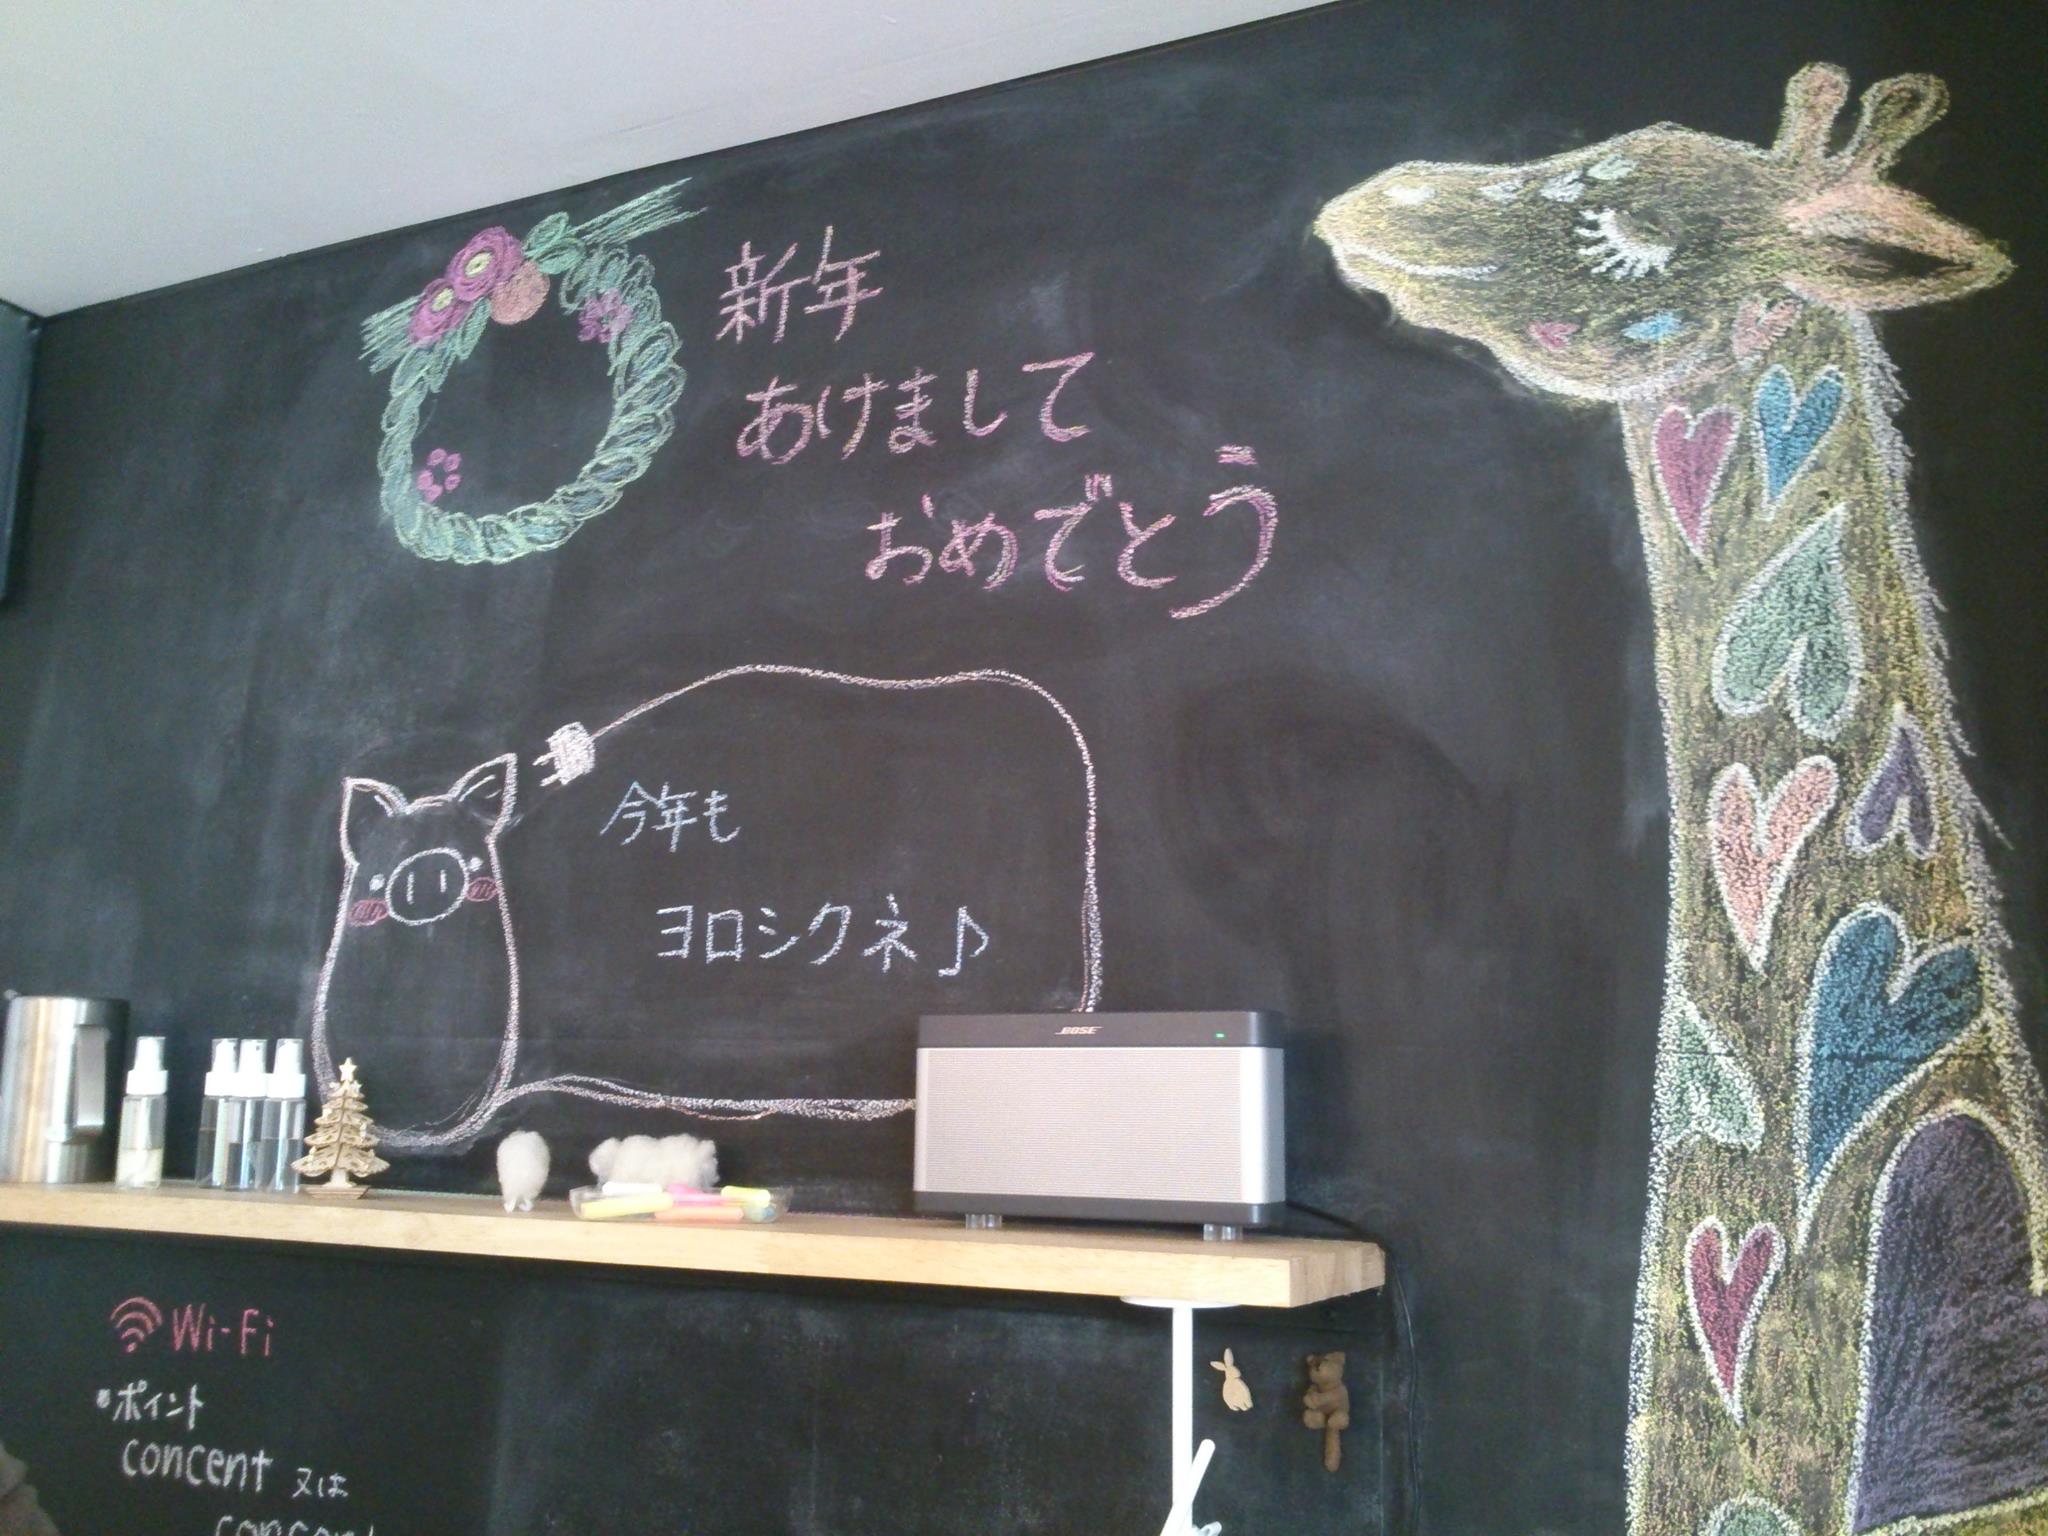 新年
あけまして
おめでとう
今年も
ヨロシクネ♪
BOSE
Wi-Fi
•ポイント
concent 又は
concent